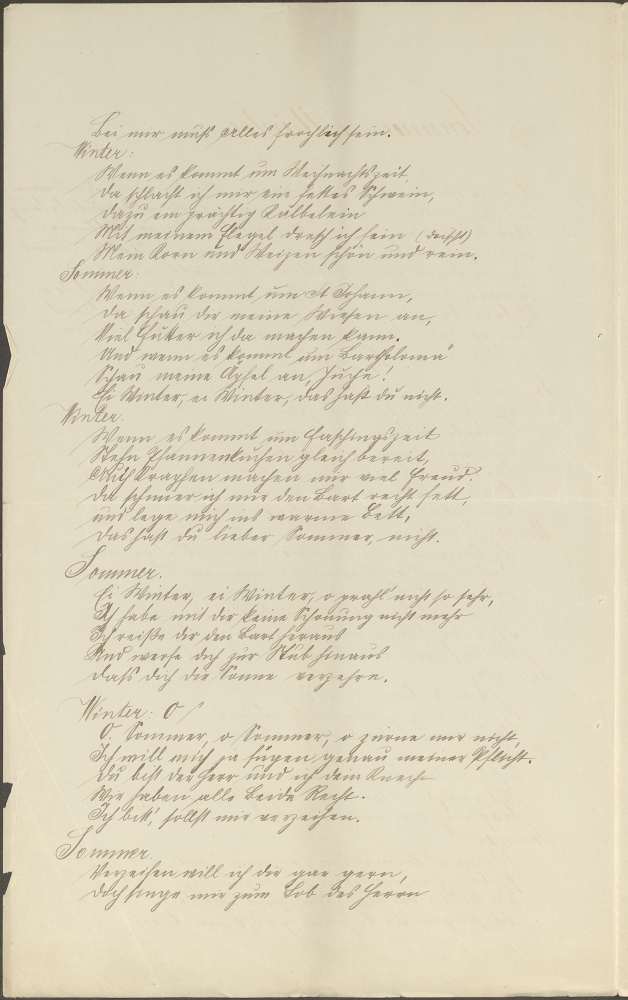 Bei mir muß alles fröhlich sein.
Winter:
Wenn es kommt um Weihnachtszeit,
Da schlacht ich mir ein fettes Schwein,
Dazu ein prächtig Kälbelein
Mit meinem Flegel dresch ich fein (drischt)
Mein Korn und Weizen schön und rein.
Sommer:
Wenn es kommt um St Johann,
Da schau dir meine Wiesen an,
Viel Futer ich da machen kann.
Und wenn es kommt um Bartholomä
Schau meine Äpfel an, Juche!
Ei Winter, ei Winter, das hast du nicht.
Winter.
Wenn es kommt um Faschingszeit
Stehn Pfannenkuchen gleich bereit,
Auch Krapfen machen mir viel Freud.
Da schmier ich mir den Bart recht fett,
und lege mich ins warme Bett,
Das hast du lieber Sommer, nicht.
Sommer.
Ei Winter, ei Winter, o prahl' nicht so sehr,
Ich habe mit dir keine Schonung nicht mehr
Ich reiße dir den Bart heraus
Und werfe dich zur Stub hinaus
Dass dich die Sonne verzehre.
Winter: O
O. Sommer, o Sommer, o zürne mir nicht,
Ich will mich ja fügen genau meiner Pflicht.
Du bist der Herr und ich dein Knecht
Wir haben alle beide Recht.
Ich bitt', sollst mir verzeihen.
Sommer.
Verzeihen will ich dir gar gern,
Doch singe mir zum Lob des Herrn